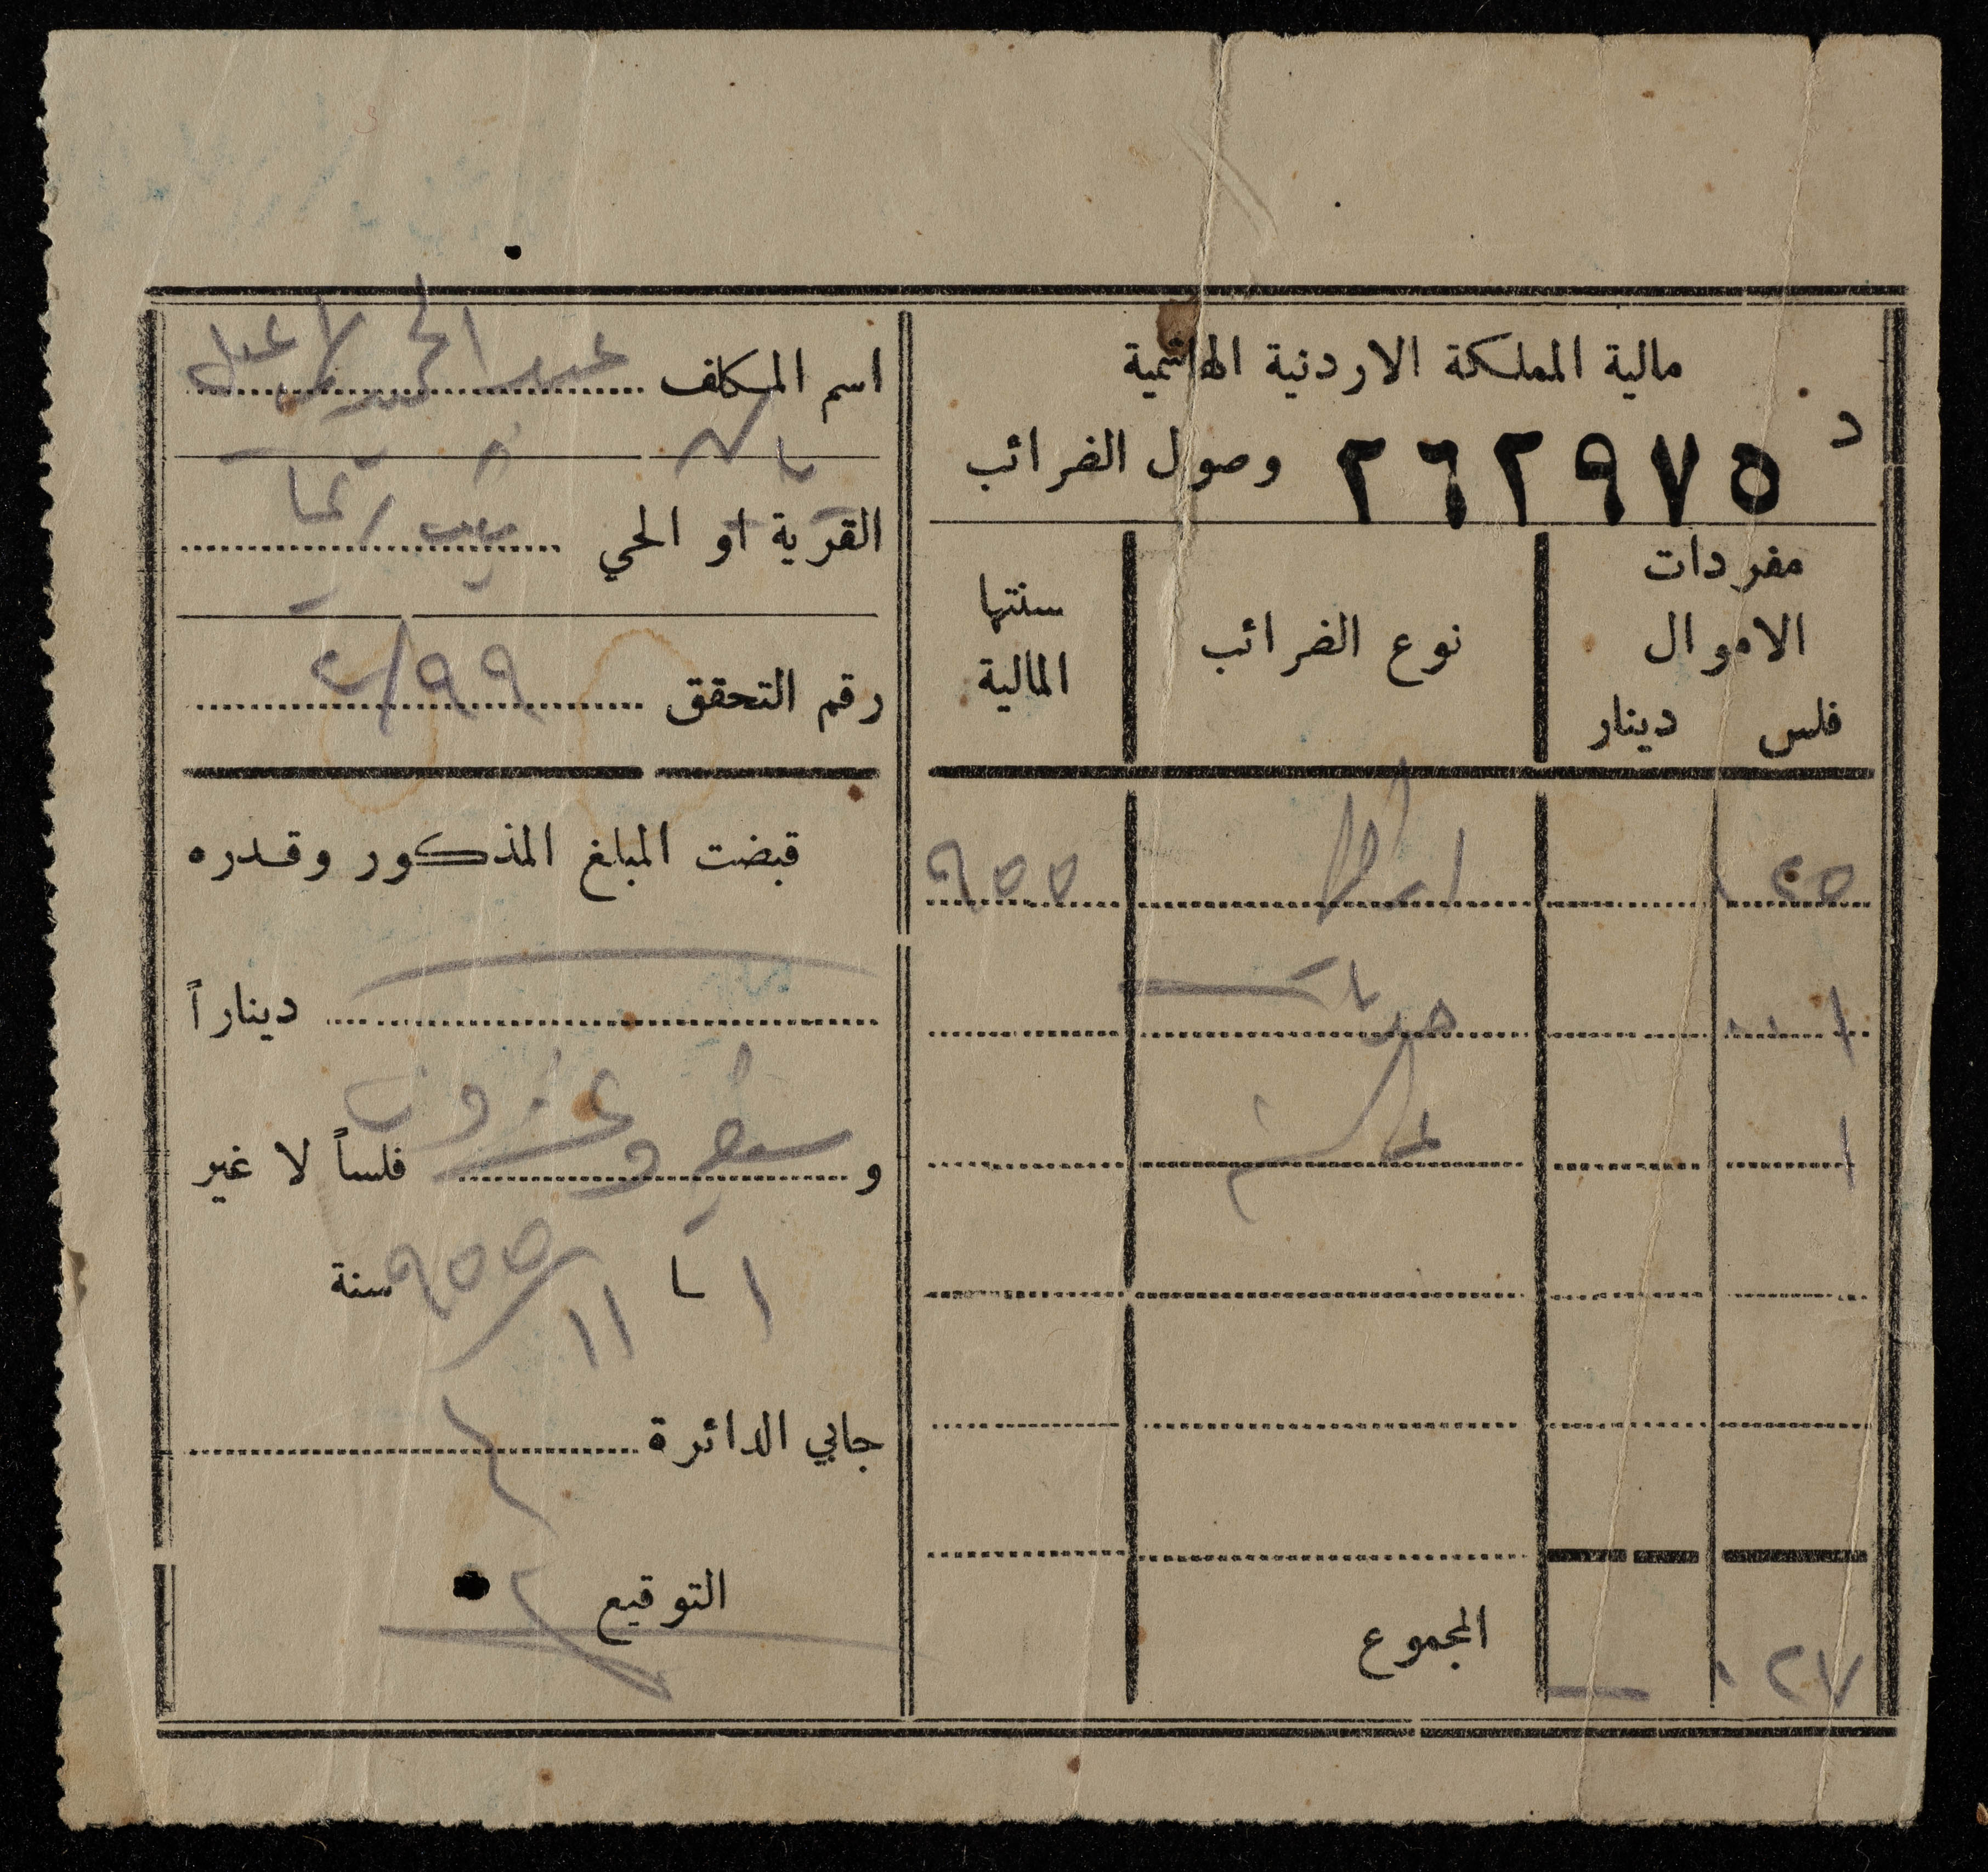 مالية المملكة الاردنية الهاشمية
د ٢٦٢٩٧٥ وصول الضرائب
مفردات الاموال
فلس دينار
نوع الضرائب
سنتها المالية
٠٢٥ ٩٥٥
٠٠١
١
المجموع
٠٢٧ —
اسم المكلف عبد
القرية او الحي بيت ريما
رقم التحقق ٩٩/٢
قبضت المبلغ المذكور وقدره
ديناراً
و سبعة وعشرون فلساً لا غير
١ / ١١ سنة ٩٥٥
جابي الدائرة
التوقيع